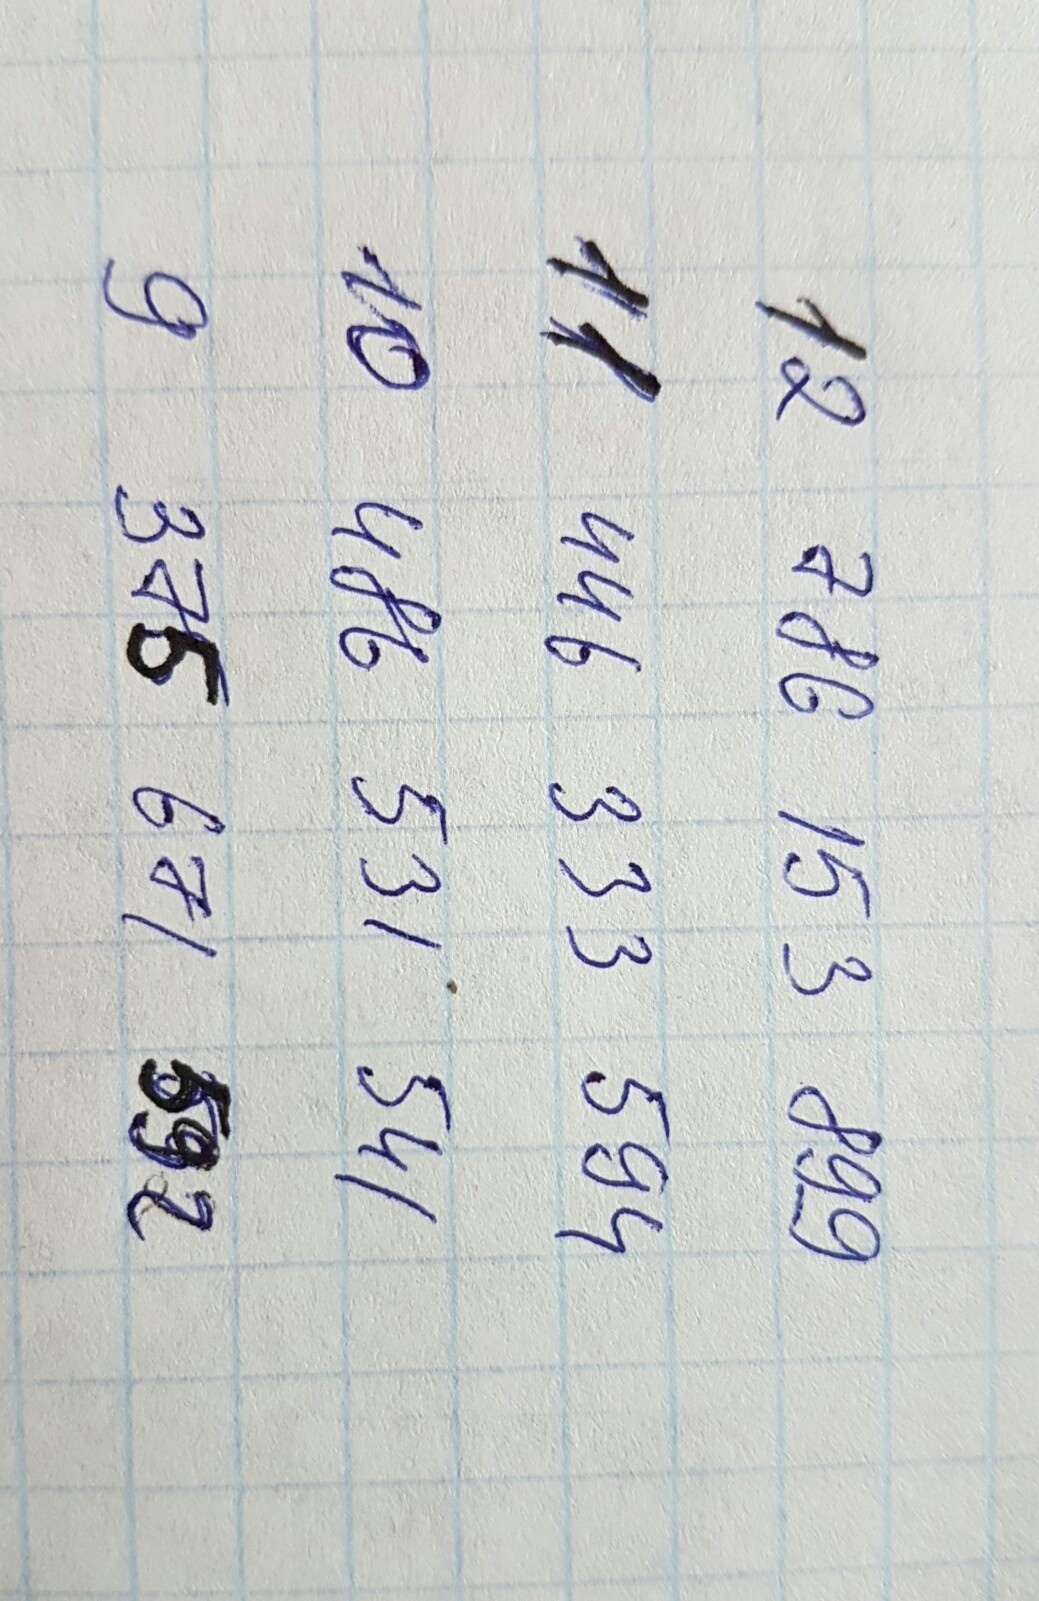 12 786 153 899
11 446 333 594
10 486 531 541
9 375 671 592